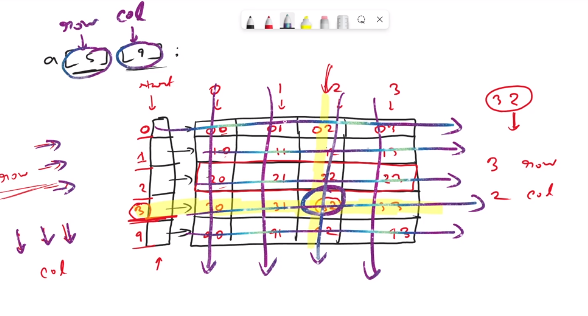 row col
a [5] [9] ;
start
0 1 2 3
0 00 01 02 03
1 10 11 12 13
2 20 21 22 23
3 30 31 32 33
9 90 91 92 93
row
col
32
3 row
2 col